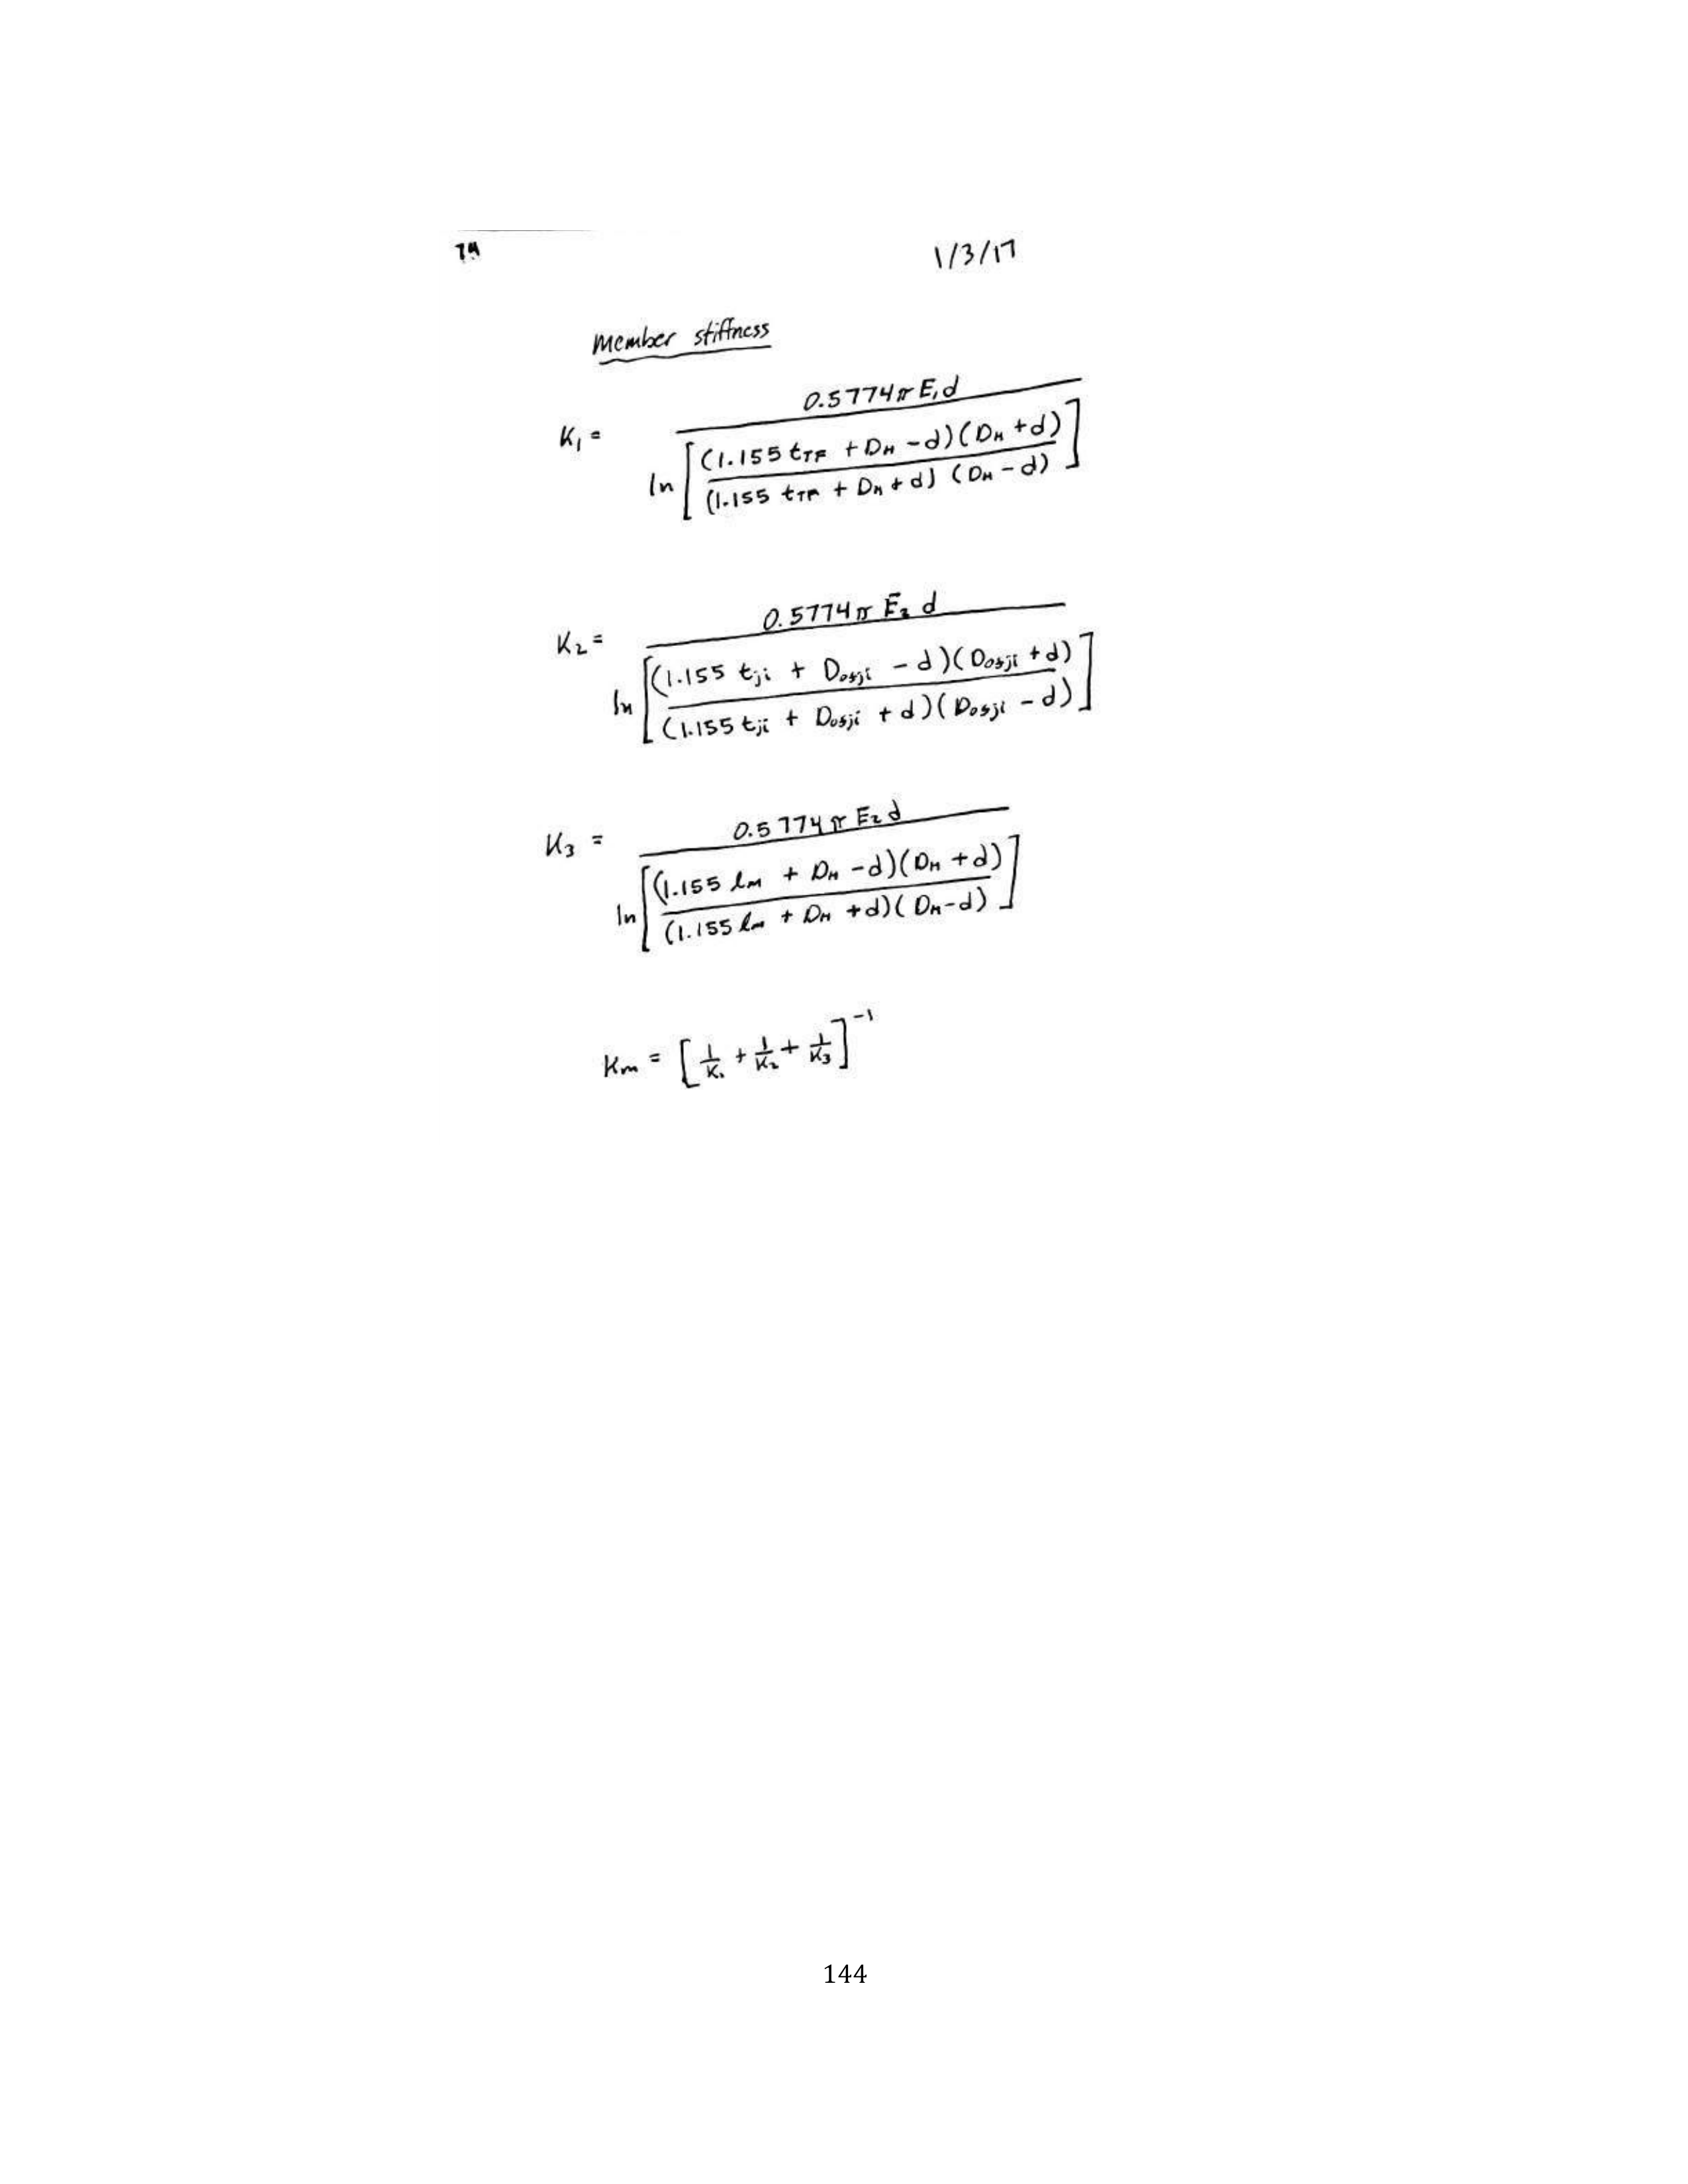 74 1/3/17
Member stiffness
K₁ = 0.5774π E₁d / ln [ (1.155 t_TF + D_H - d)(D_H + d) / (1.155 t_TF + D_H + d)(D_H - d) ]
K₂ = 0.5774π E₂ d / ln [ (1.155 t_ji + D_osji - d)(D_osji + d) / (1.155 t_ji + D_osji + d)(D_osji - d) ]
K₃ = 0.5774π E₂d / ln [ (1.155 l_m + D_H - d)(D_H + d) / (1.155 l_m + D_H + d)(D_H - d) ]
K_m = [ 1/K₁ + 1/K₂ + 1/K₃ ]⁻¹
144